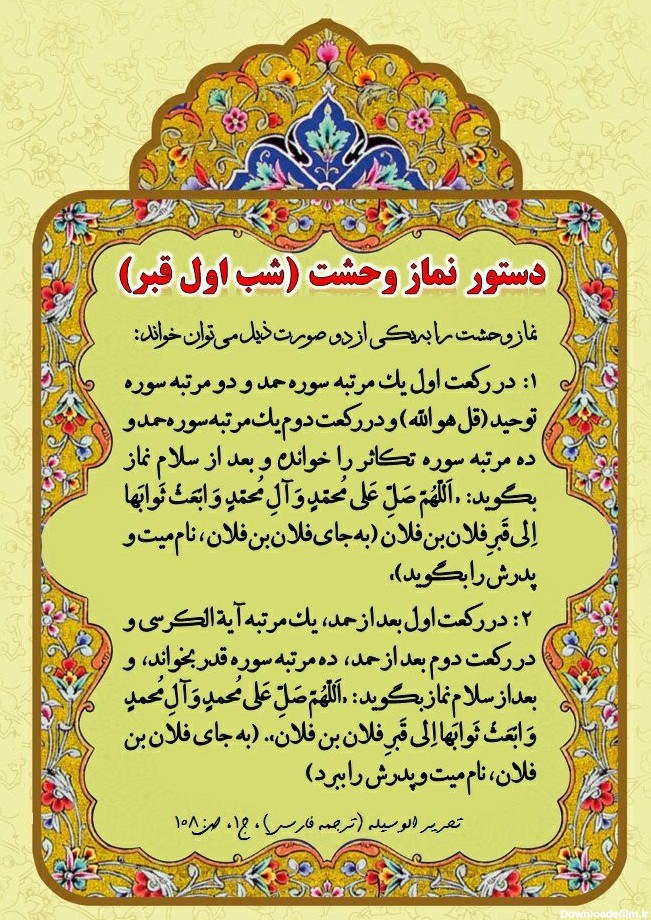 دستور نماز وحشت (شب اول قبر)
نماز وحشت را به یکی از دو صورت ذیل می‌توان خواند:
۱: در رکعت اول یک مرتبه سوره حمد و دو مرتبه سوره
توحید (قل هو الله) و در رکعت دوم یک مرتبه سوره حمد و
ده مرتبه سوره تکاثر را خوانده و بعد از سلام نماز
بگوید: «اَللّهُمَّ صَلِّ عَلی مُحمّدٍ وَ آلِ مُحمّدٍ وَ ابعَث ثَوابَها
اِلی قَبرِ فلان بن فلان (به جای فلان بن فلان، نام میت و
پدرش را بگوید)».
۲: در رکعت اول بعد از حمد، یک مرتبه آیة الکرسی و
در رکعت دوم بعد از حمد، ده مرتبه سوره قدر بخواند، و
بعد از سلام نماز بگوید: «اَللّهُمّ صَلِّ عَلی مُحمدٍ وَ آلِ مُحمدٍ
وَ ابعَث ثَوابَها اِلی قَبرِ فلان بن فلان». (به جای فلان بن
فلان، نام میت و پدرش را ببرد)
تحریر الوسیله (ترجمه فارسی)، ج۱، ص۱۵۸
Downloadefilm.ir